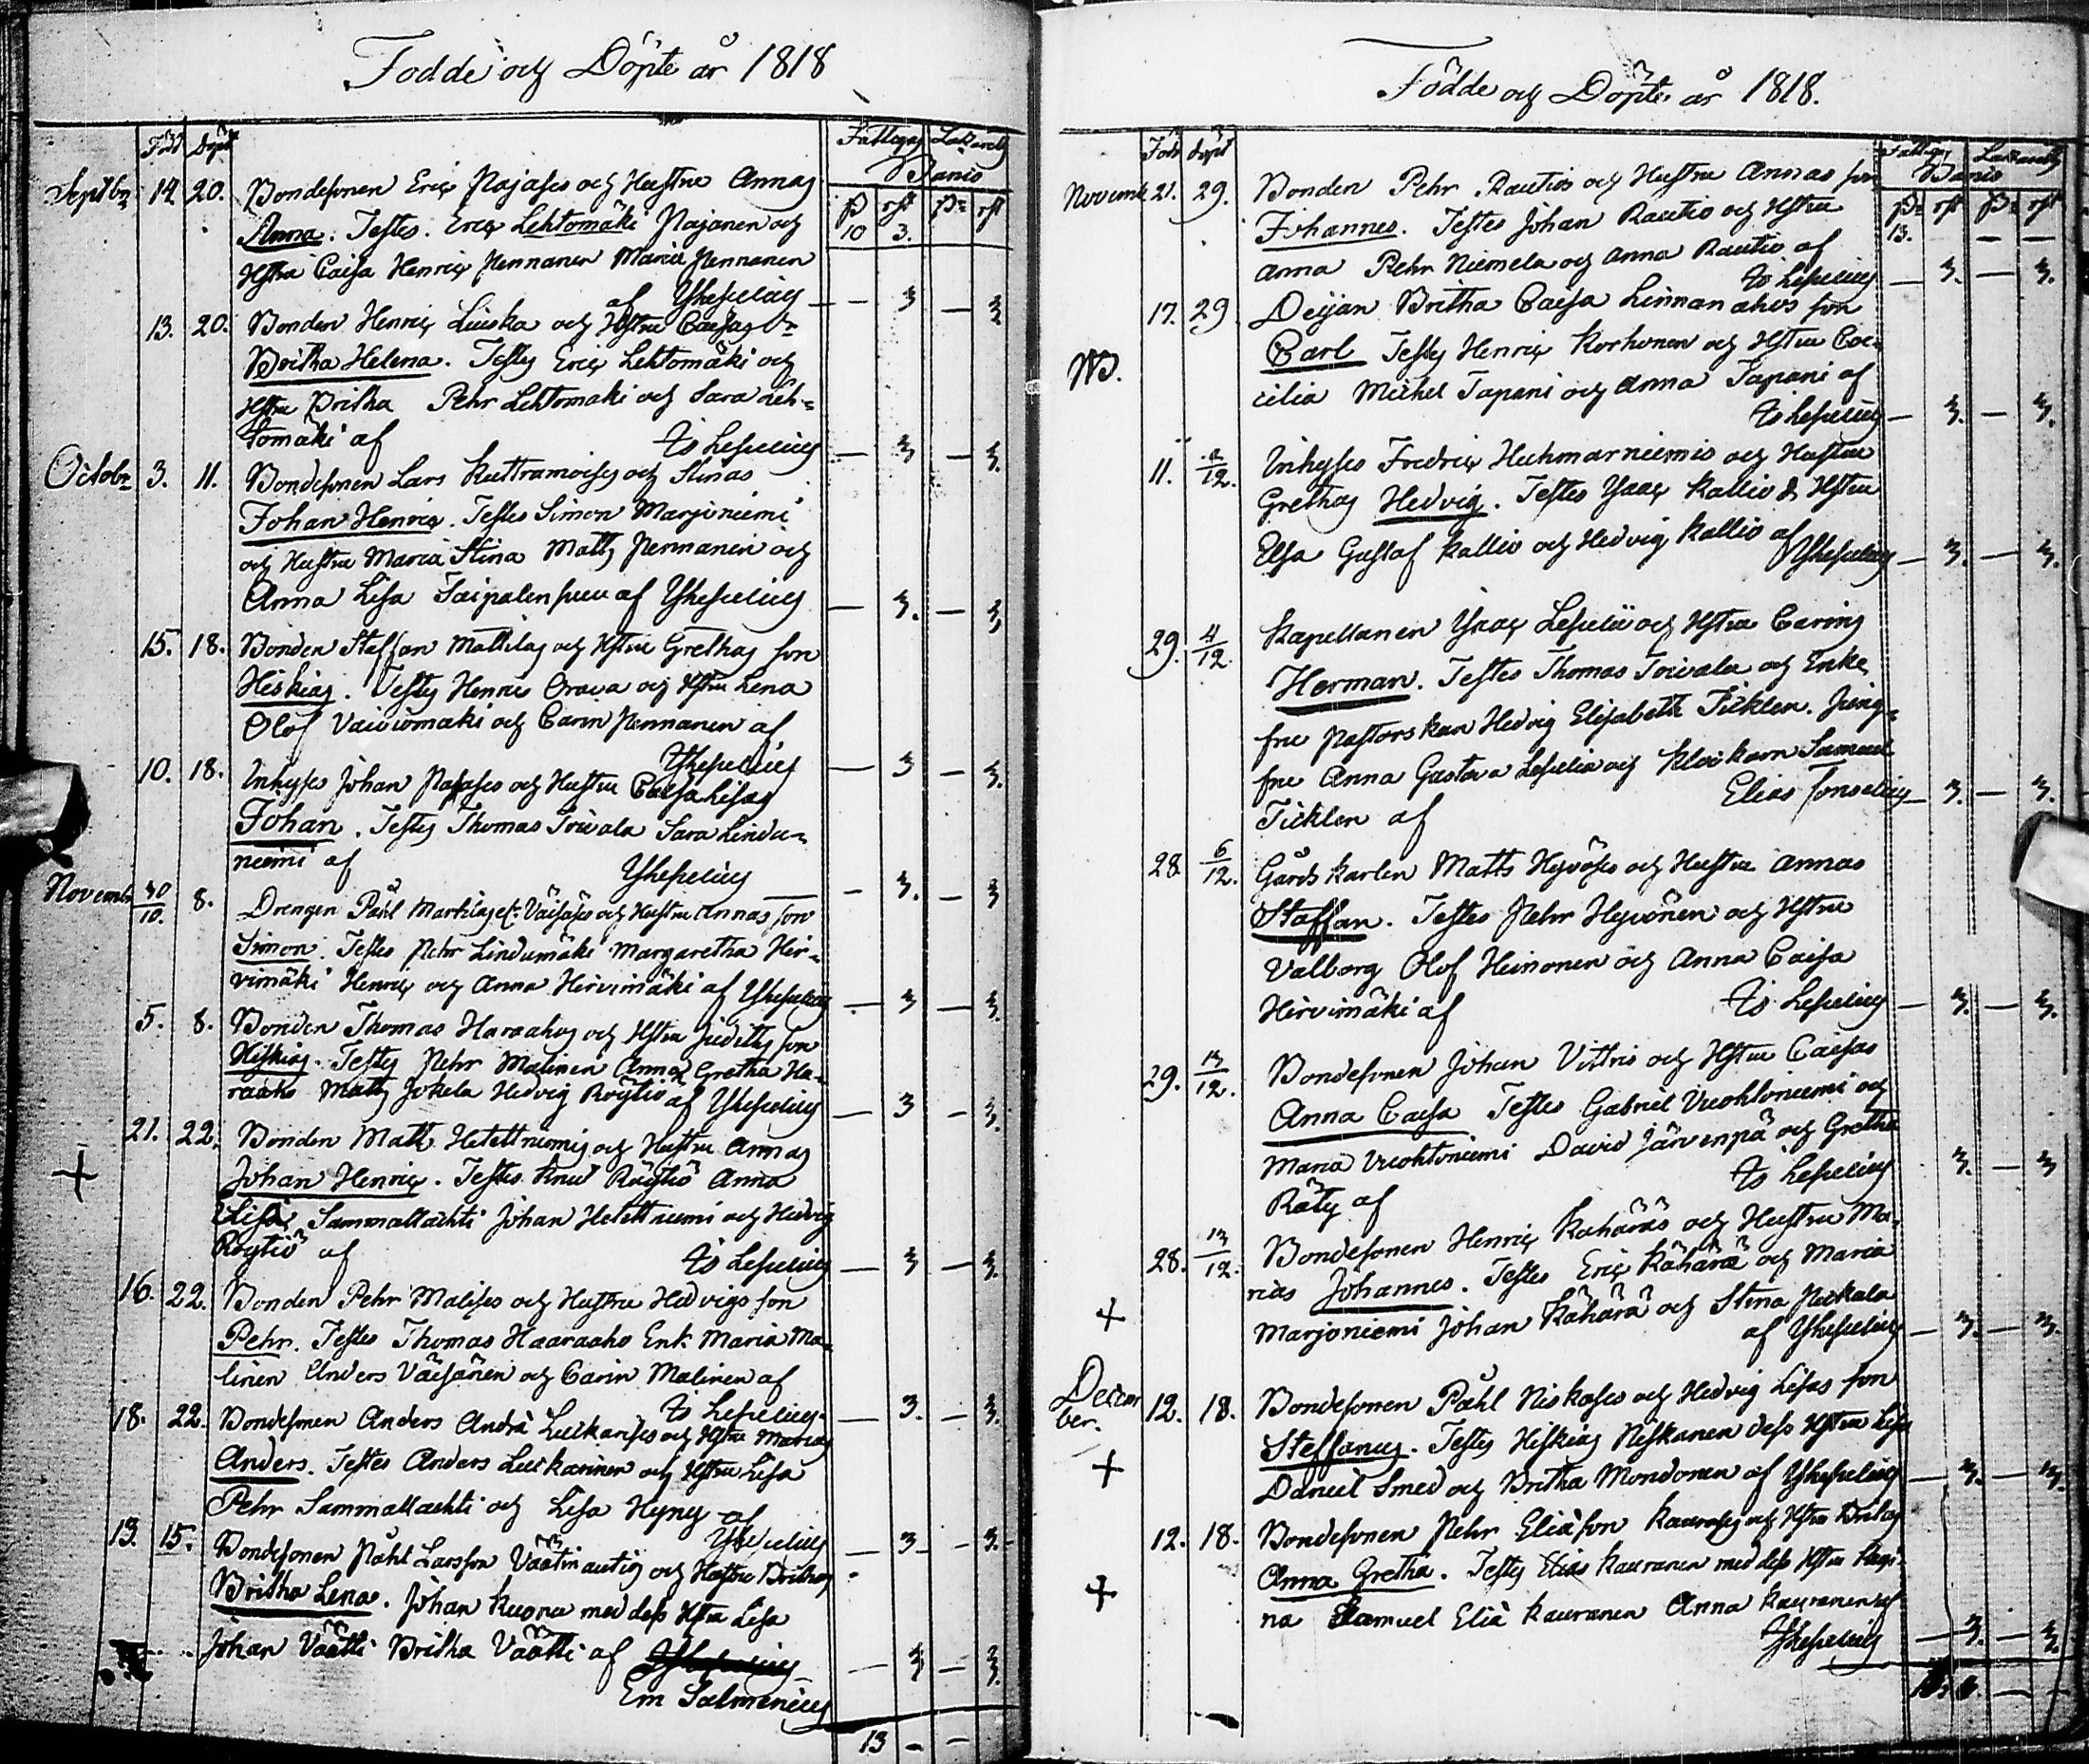 Fodde och Döpte år 1818
Född Döpt
Fattigas Lazarets
Banco
Septbr 14. 20. Bondesonen Eric Pajases och Hustru Annas
ß rst ß rst
Anna. Testes. Eric Lehtomäki Pajanen och 10 3.
Hstru Caisa Henric Pennanen Maria Pennanen
af YsLesselius — 3 — 3
13. 20. Bonden Henric Luuska och Hstru Caisas dr
Britha Helena. Testes Eric Lehtomäki och
Hstru Britha Pehr Lehtomaki och Sara Leh-
tomäki af Is Lesselius — 3 — 3.
Octobr 3. 11. Bondesonen Lars och Stinas
Johan Henric. Testes Simon Marjoniemi
och Hustru Maria Stina Matts Pennanen och
Anna Lisa af YsLesselius — 3. — 3
15. 18. Bonden Staffan Mattilas och Hstru Grethas son
Hiskias. Testes Henric Orava och Hstru Lena
Olof och Carin Pennanen af
YsLesselius — 3 — 3.
10. 18. Inhyses Johan Pajases och Hustru Caisa Lisas
Johan. Testes Thomas Toivala Sara Lindu-
niemi af YsLesselius — 3. — 3
Novemb 30/10. 8. Drengen Påhl Väisäses och Hustru Annas son
Simon. Testes Pehr Lindumäki Margaretha Hir-
vimäki Henric och Anna Hirvimäki af YsLesselius — 3 — 3.
5. 8. Bonden Thomas Haraahos och Hstru Judiths son
Hiskias. Testes Pehr Malinen Anna Gretha Ha-
raaho Matts Jokela Hedvig Röytiö af YsLesselius — 3 — 3.
21. 22. Bonden Matts Hetettniemis och Hustru Annas
+ Johan Henric. Testes Knut Röytiö Anna
Lisa Sammallachti Johan Hetettniemi och Hedvig
Röytiö af Is Lesselius — 3 — 3.
16. 22. Bonden Pehr Malises och Hustru Hedvigs son
Pehr. Testes Thomas Haaraaho Enk. Maria Ma-
linen Anders Väisänen och Carin Malinen af
Is Lesselius — 3. — 3.
18. 22. Bondesonen Anders Luikarises och Hstru Marias
Anders. Testes Anders Luikarinen och Hstru Lisa
Pehr Sammallachti och Lisa Hyny af
YsLesselius — 3 — 3.
13. 15. Bondesonen Påhl Larsson och Hustru Brithas
Britha Lena. Johan Kuona med dess Hstru Lisa
Johan Väätti Britha Väätti af — 3 — 3
Em Salmenius
13 — —
Födde och Döpte år 1818.
Född döpt
Fattigas Lazarets
Banco
Novemb 21. 29. Bonden Pehr Rautios och Hustru Annas son
ß rst ß rst
Johannes. Testes Johan Rautio och Hstru 13. — —
Anna Pehr Niemela och Anna Rautio af
Is Lesselius — 3. — 3.
17. 29 Deijan Britha Caisa Linnanahos son
NB. Carl Testes Henric Korhonen och Hstru Coe-
cilia Michel Tapani och Anna Tapani af
Is Lesselius — 3. — 3.
11. 2/12. Inhyses Fredric Huhmarniemis och Hustru
Grethas Hedvig. Testes Ysaac Kallio & Hstru
Elsa Gustaf Kallio och Hedvig Kallio af YsLesselius — 3. — 3.
29. 4/12. Kapellanen Ysaac Lesselii och Hstru Carins
Herman. Testes Thomas Toivala och Enke
fru Pastorskan Hedvig Elisabeth Ticklen. Jung-
fru Anna Gustava Lesselia och Klockarn Samuel
Ticklen af Elias Fonselius — 3. — 3.
28 6/12. Gårdskarlen Matts Hyvöses och Hustru Annas
Staffan. Testes Pehr Hyvönen och Hstru
Valborg Olof Heinonen och Anna Caisa
Hirvimäki af Is Lesselius — 3. — 3.
29. 13/12. Bondesonen Johan Vittris och Hstru Caisas
Anna Caisa Testes Gabriel Vuohtoniemi och
Maria Vuohtoniemi David Järvenpä och Gretha
Räty af Is Lesselius 3. — 3
28. 13/12. Bondesonen Henric Kähäräs och Hustru Ma-
rias Johannes. Testes Eric Kähärä och Maria
+ Marjoniemi Johan Kähärä och Stina Pukala
af YsLesselius — 3. — 3.
Decem
ber. 12. 18. Bondesonen Påhl Niskases och Hedvig Lisas son
Steffanus. Testes Hiskias Niskanen dess Hstru Lisa
+ Daniel Smed och Britha Mondonen af YsLesselius — 3. — 3.
12. 18. Bondesonen Pehr Eliæson Kaurases och Hstru Britas
Anna Gretha. Testes Elias Kauranen med dess Hstru Regi-
+ na Samuel Eliæ Kauranen Anna Kauranen af
YsLesselius — 3. — 3.